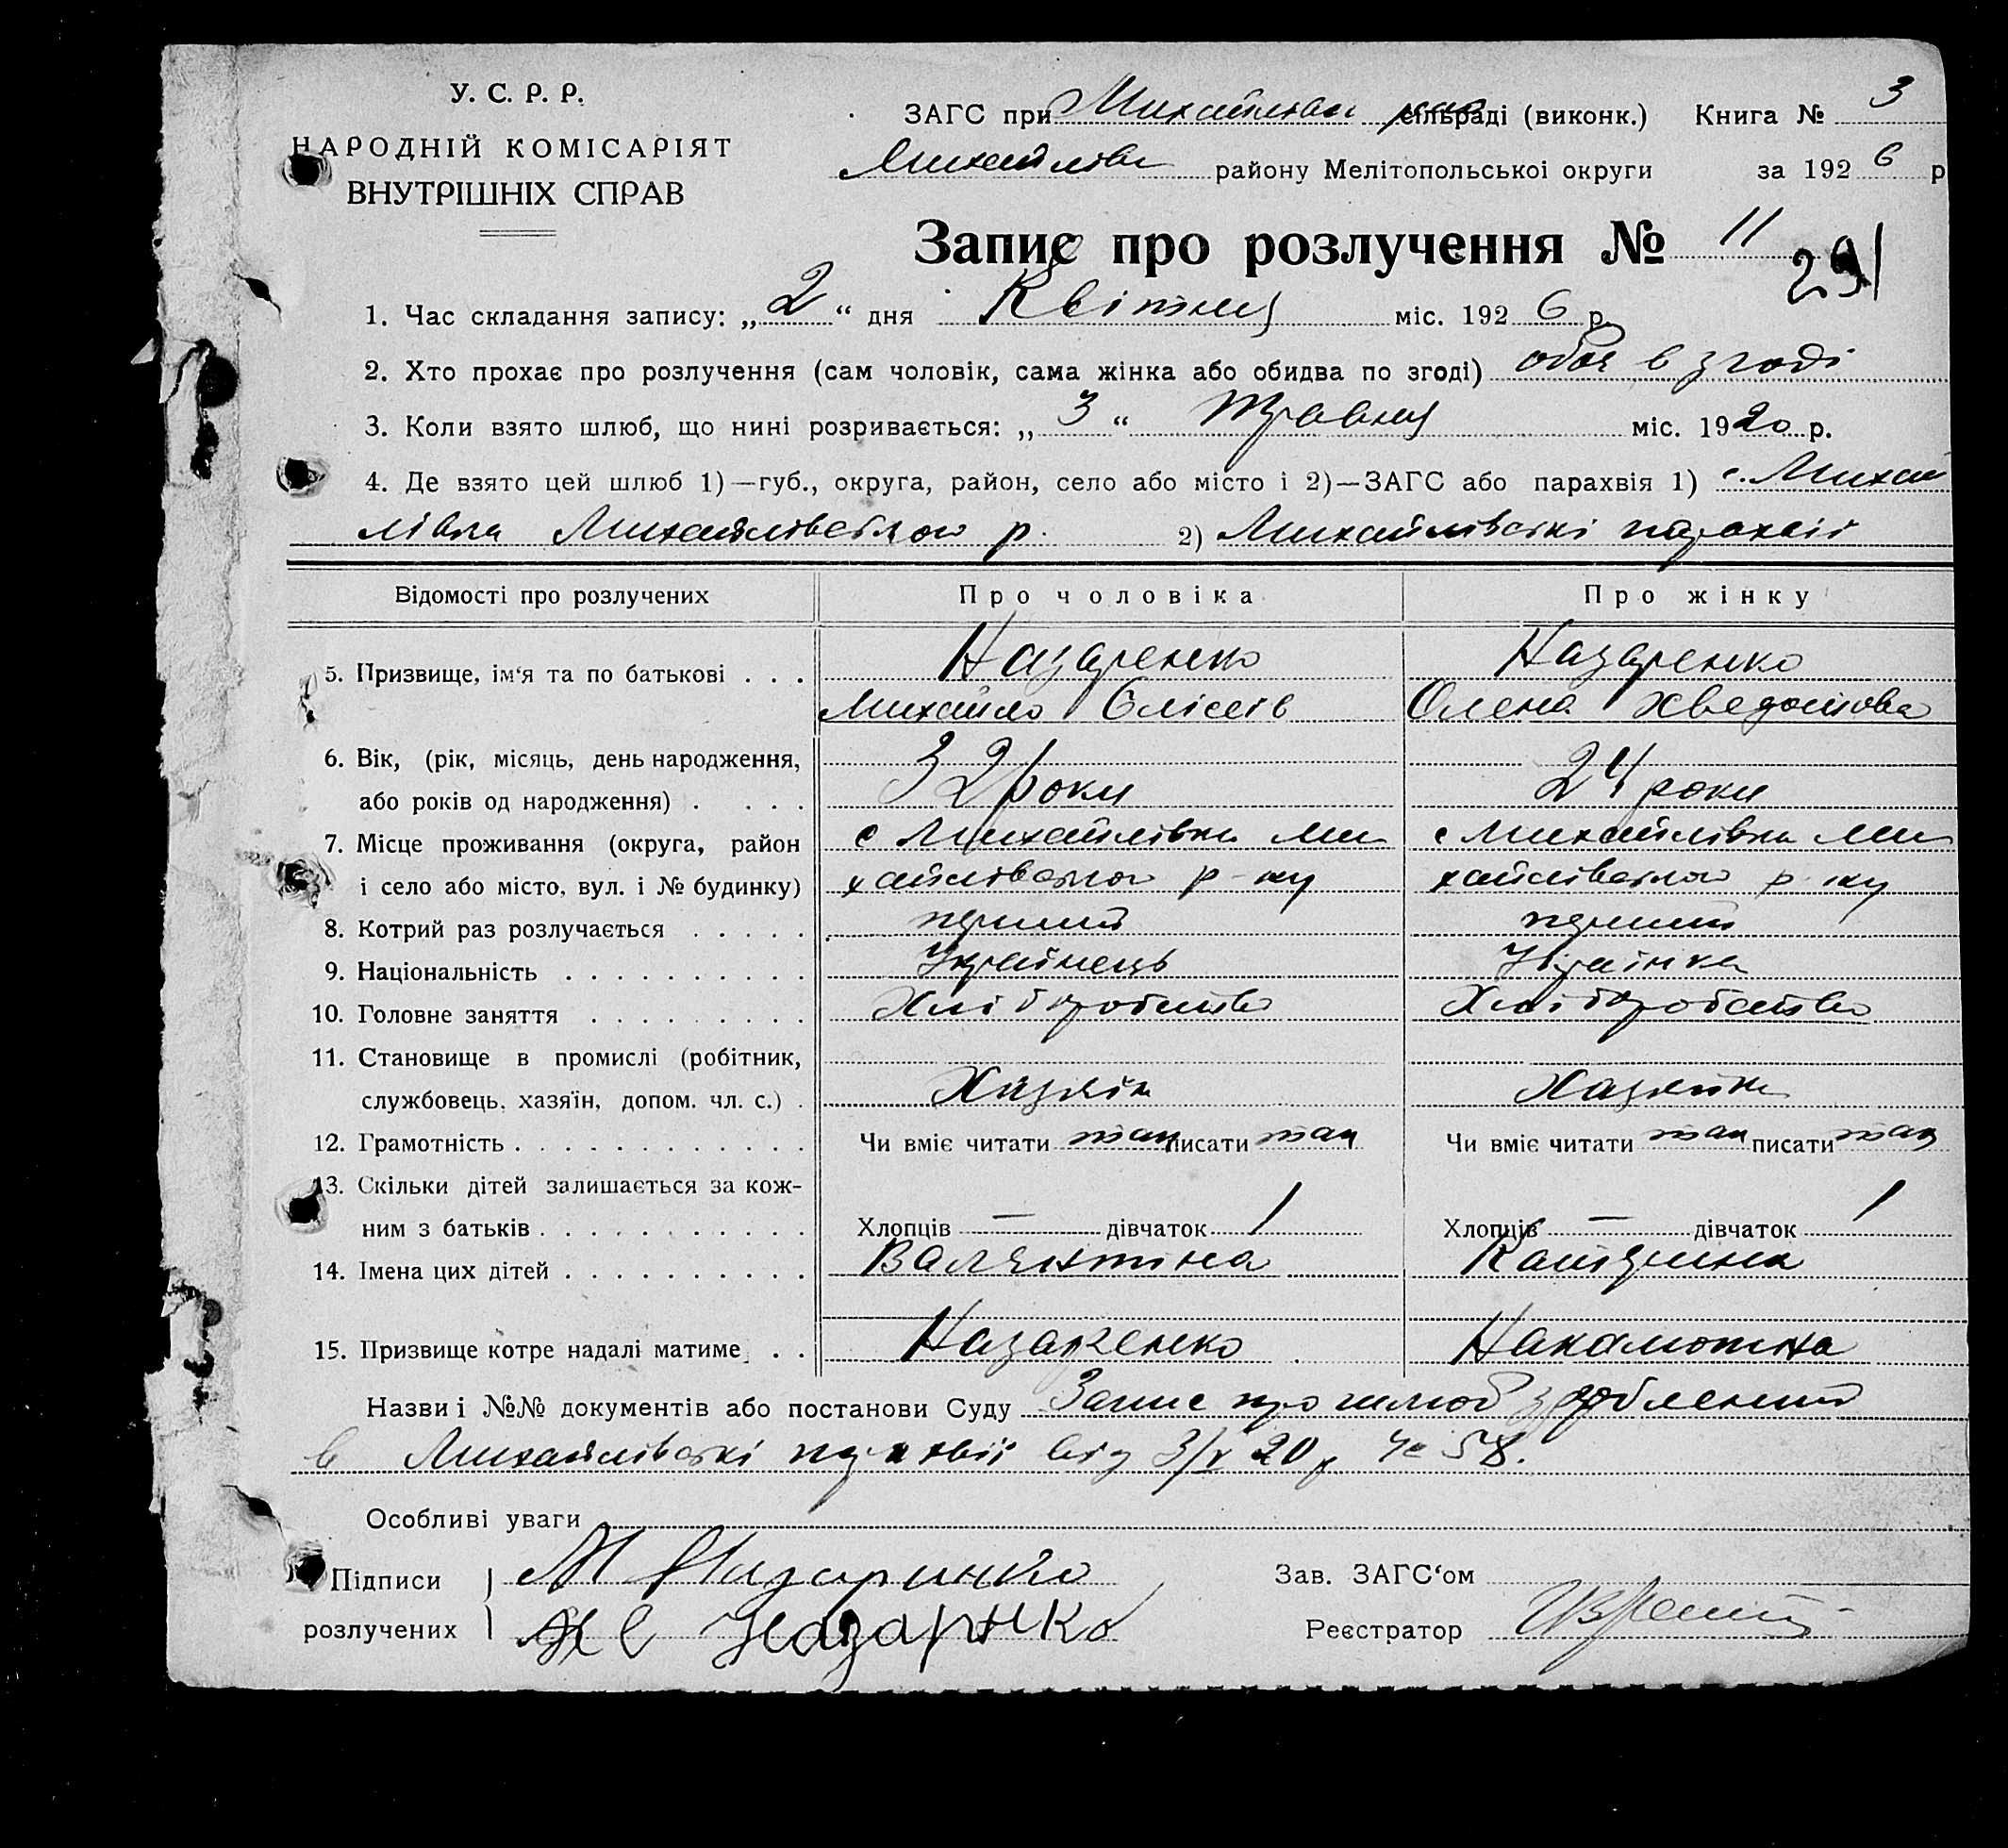 У. С. Р. Р.
НАРОДНІЙ КОМІСАРІЯТ
ВНУТРІШНІХ СПРАВ
ЗАГС при Михайлівськ рай сільраді (виконк.) Книга № 3
Михайлівськ району Мелітопольської округи за 1926 р
Запис про розлучення № 11
291
1. Час складання запису: „2“ дня Квітня міс. 1926 р.
2. Хто прохає про розлучення (сам чоловік, сама жінка або обидва по згоді) обоє в згоді
3. Коли взято шлюб, що нині розривається: „3“ травня міс. 1920 р.
4. Де взято цей шлюб 1)—губ., округа, район, село або місто і 2)—ЗАГС або парахвія 1) с. Михай
лівка Михайлівського р. 2) Михайлівські парахвії
Відомості про розлучених Про чоловіка Про жінку
5. Призвище, ім‘я та по батькові . . . Назаренко Назаренко
Михайло Олісеів Олена Хведотова
6. Вік, (рік, місяць, день народження,
або років од народження) . . . . 32 роки 24 роки
7. Місце проживання (округа, район с Михайлівка Ми с Михайлівка Ми
і село або місто, вул. і № будинку) хайлівського р-ну хайлівського р-ну
8. Котрий раз розлучається . . . . . перший перший
9. Національність . . . . . . . . . . Українець Українка
10. Головне заняття . . . . . . . . . Хліборобство Хліборобство
11. Становище в промислі (робітник,
службовець, хазяїн, допом. чл. с.) . Хазяїн Хазяйка
12. Грамотність . . . . . . . . . . . . Чи вміє читати так писати так Чи вміє читати так писати так
13. Скільки дітей залишається за кож-
ним з батьків . . . . . . . . . . . Хлопців — дівчаток 1 Хлопців — дівчаток 1
14. Імена цих дітей . . . . . . . . . . Валянтина Катерина
15. Призвище котре надалі матиме . . Назаренко
Назви і №№ документів або постанови Суду Запис про шлюб зроблений
в Михайлівські парахвії від 3/V 20 р № 58.
Особливі уваги
Підписи М Назаринко Зав. ЗАГС‘ом
розлучених Назарнко Реєстратор